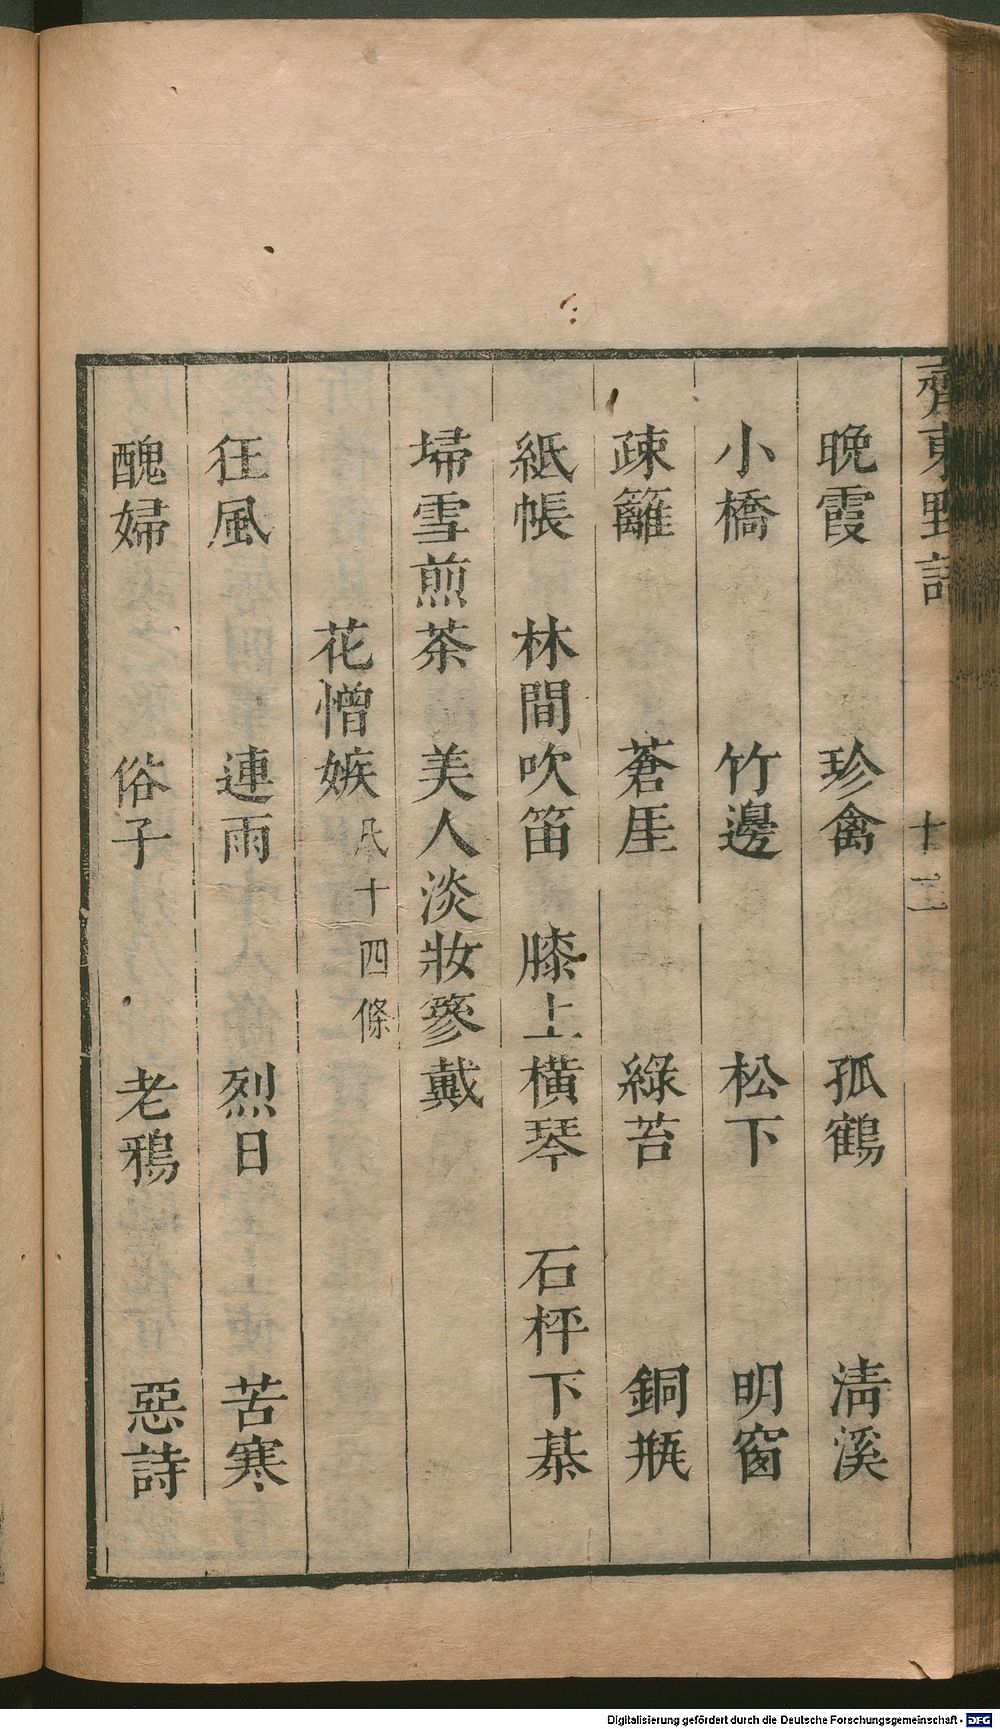 齊東野語 十二
晚霞 珍禽 孤鶴 淸溪
小橋 竹邊 松下 明窗
疎籬 蒼厓 綠苔 銅瓶
紙帳 林間吹笛 膝上橫琴 石枰下棊
埽雪煎茶 美人淡妝篸戴
花憎嫉凡十四條
狂風 連雨 烈日 苦寒
醜婦 俗子 老鴉 惡詩
Digitalisierung gefördert durch die Deutsche Forschungsgemeinschaft - DFG